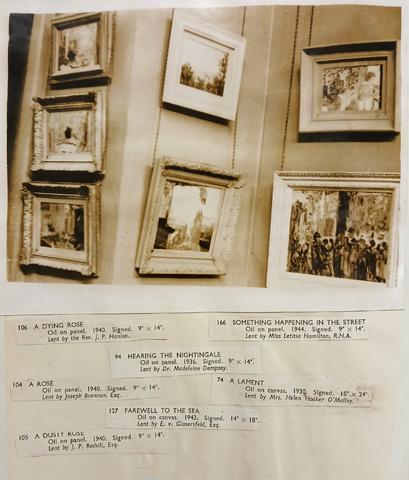 106 A DYING ROSE
Oil on panel. 1940. Signed. 9" × 14".
Lent by the Rev. J. P. Hanlon.
166 SOMETHING HAPPENING IN THE STREET
Oil on panel. 1944. Signed. 9" × 14".
Lent by Miss Letitia Hamilton, R.H.A.
94 HEARING THE NIGHTINGALE
Oil on panel. 1936. Signed. 9" × 14".
Lent by Dr. Madeleine Dempsey.
104 A ROSE
Oil on panel. 1940. Signed. 9" × 14".
Lent by Joseph Brennan, Esq.
74 A LAMENT
Oil on canvas. 1930. Signed. 18" × 24".
Lent by Mrs. Helen Hooker O'Malley.
127 FAREWELL TO THE SEA
Oil on canvas. 1943. Signed. 14" × 18".
Lent by E. v. Glasersfeld, Esq.
105 A DUSTY ROSE
Oil on panel. 1940. Signed. 9" × 14".
Lent by J. P. Reihill, Esq.